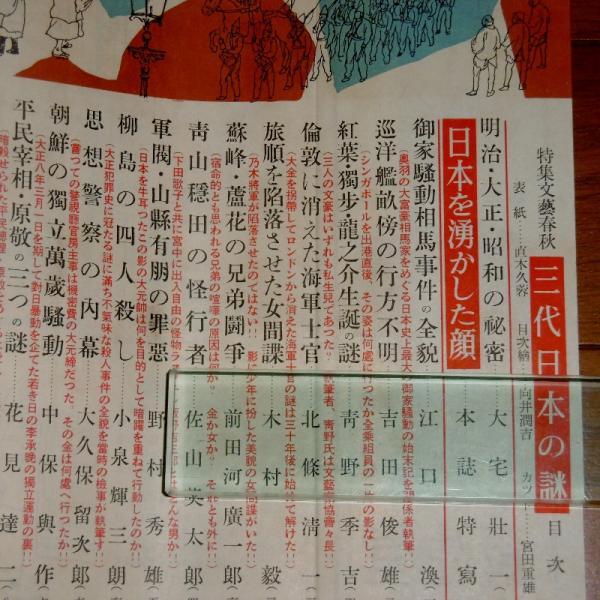 特集文藝春秋
三代日本の謎
目次
表紙……直木久蓉
目次繪……向井潤吉
カット……宮田重雄
明治・大正・昭和の秘密……大宅壯一
日本を湧かした顔……本誌特寫
御家騷動相馬事件の全貌……江口渙
(奥羽の大富豪相馬家をめぐる日本史上最大の御家騷動の始末記を關係者執筆!!)
巡洋艦畝傍の行方不明……吉田俊雄
(シンガポールを出港直後、その姿は何處に行つたか全乘組員の一片の影なし!)
紅葉・獨步・龍之介生誕の謎……靑野季吉
(三人の文豪はいずれも私生兒であつた?執筆者、靑野氏は文藝家協會々長!!)
倫敦に消えた海軍士官……北條淸一
(大金を拐帶してロンドンから消えた海軍士官の謎は三十年後に始めて解けた!!)
旅順を陷落させた女間諜……木村毅
(乃木將軍が陷落させたのではない!影に少年に扮した美貌の女間諜がいた!!)
蘇峰・蘆花の兄弟鬪爭……前田河廣一郎
(宿命的とも思われる兄弟の喧嘩の原因は何か?金か女か?それとも外に!!)
靑山穩田の怪行者……佐山英太郎
(下田歌子と共に宮中に出入自由の怪物
軍閥・山縣有朋の罪惡……野村秀雄
(日本を牛耳つたこの影の大元帥は何を目的として暗躍を重ねて行動したのか!!)
柳島の四人殺し……小泉輝三朗
(大正犯罪史に冠たる謎に滿ちた不氣味な殺人事件の全貌を當時の檢事が執筆す!!)
思想警察の內幕……大久保留次郎
(嘗つての警視廳官房主事は機密費の大元締だつた。その金は何處へ行つたか!!)
朝鮮の獨立萬歲騷動……中保與作
(大正八年三月一日を期して對日暴動を企てた若き日の李承晩の獨立運動の裏!!)
平民宰相・原敬の三つの謎……花見達二